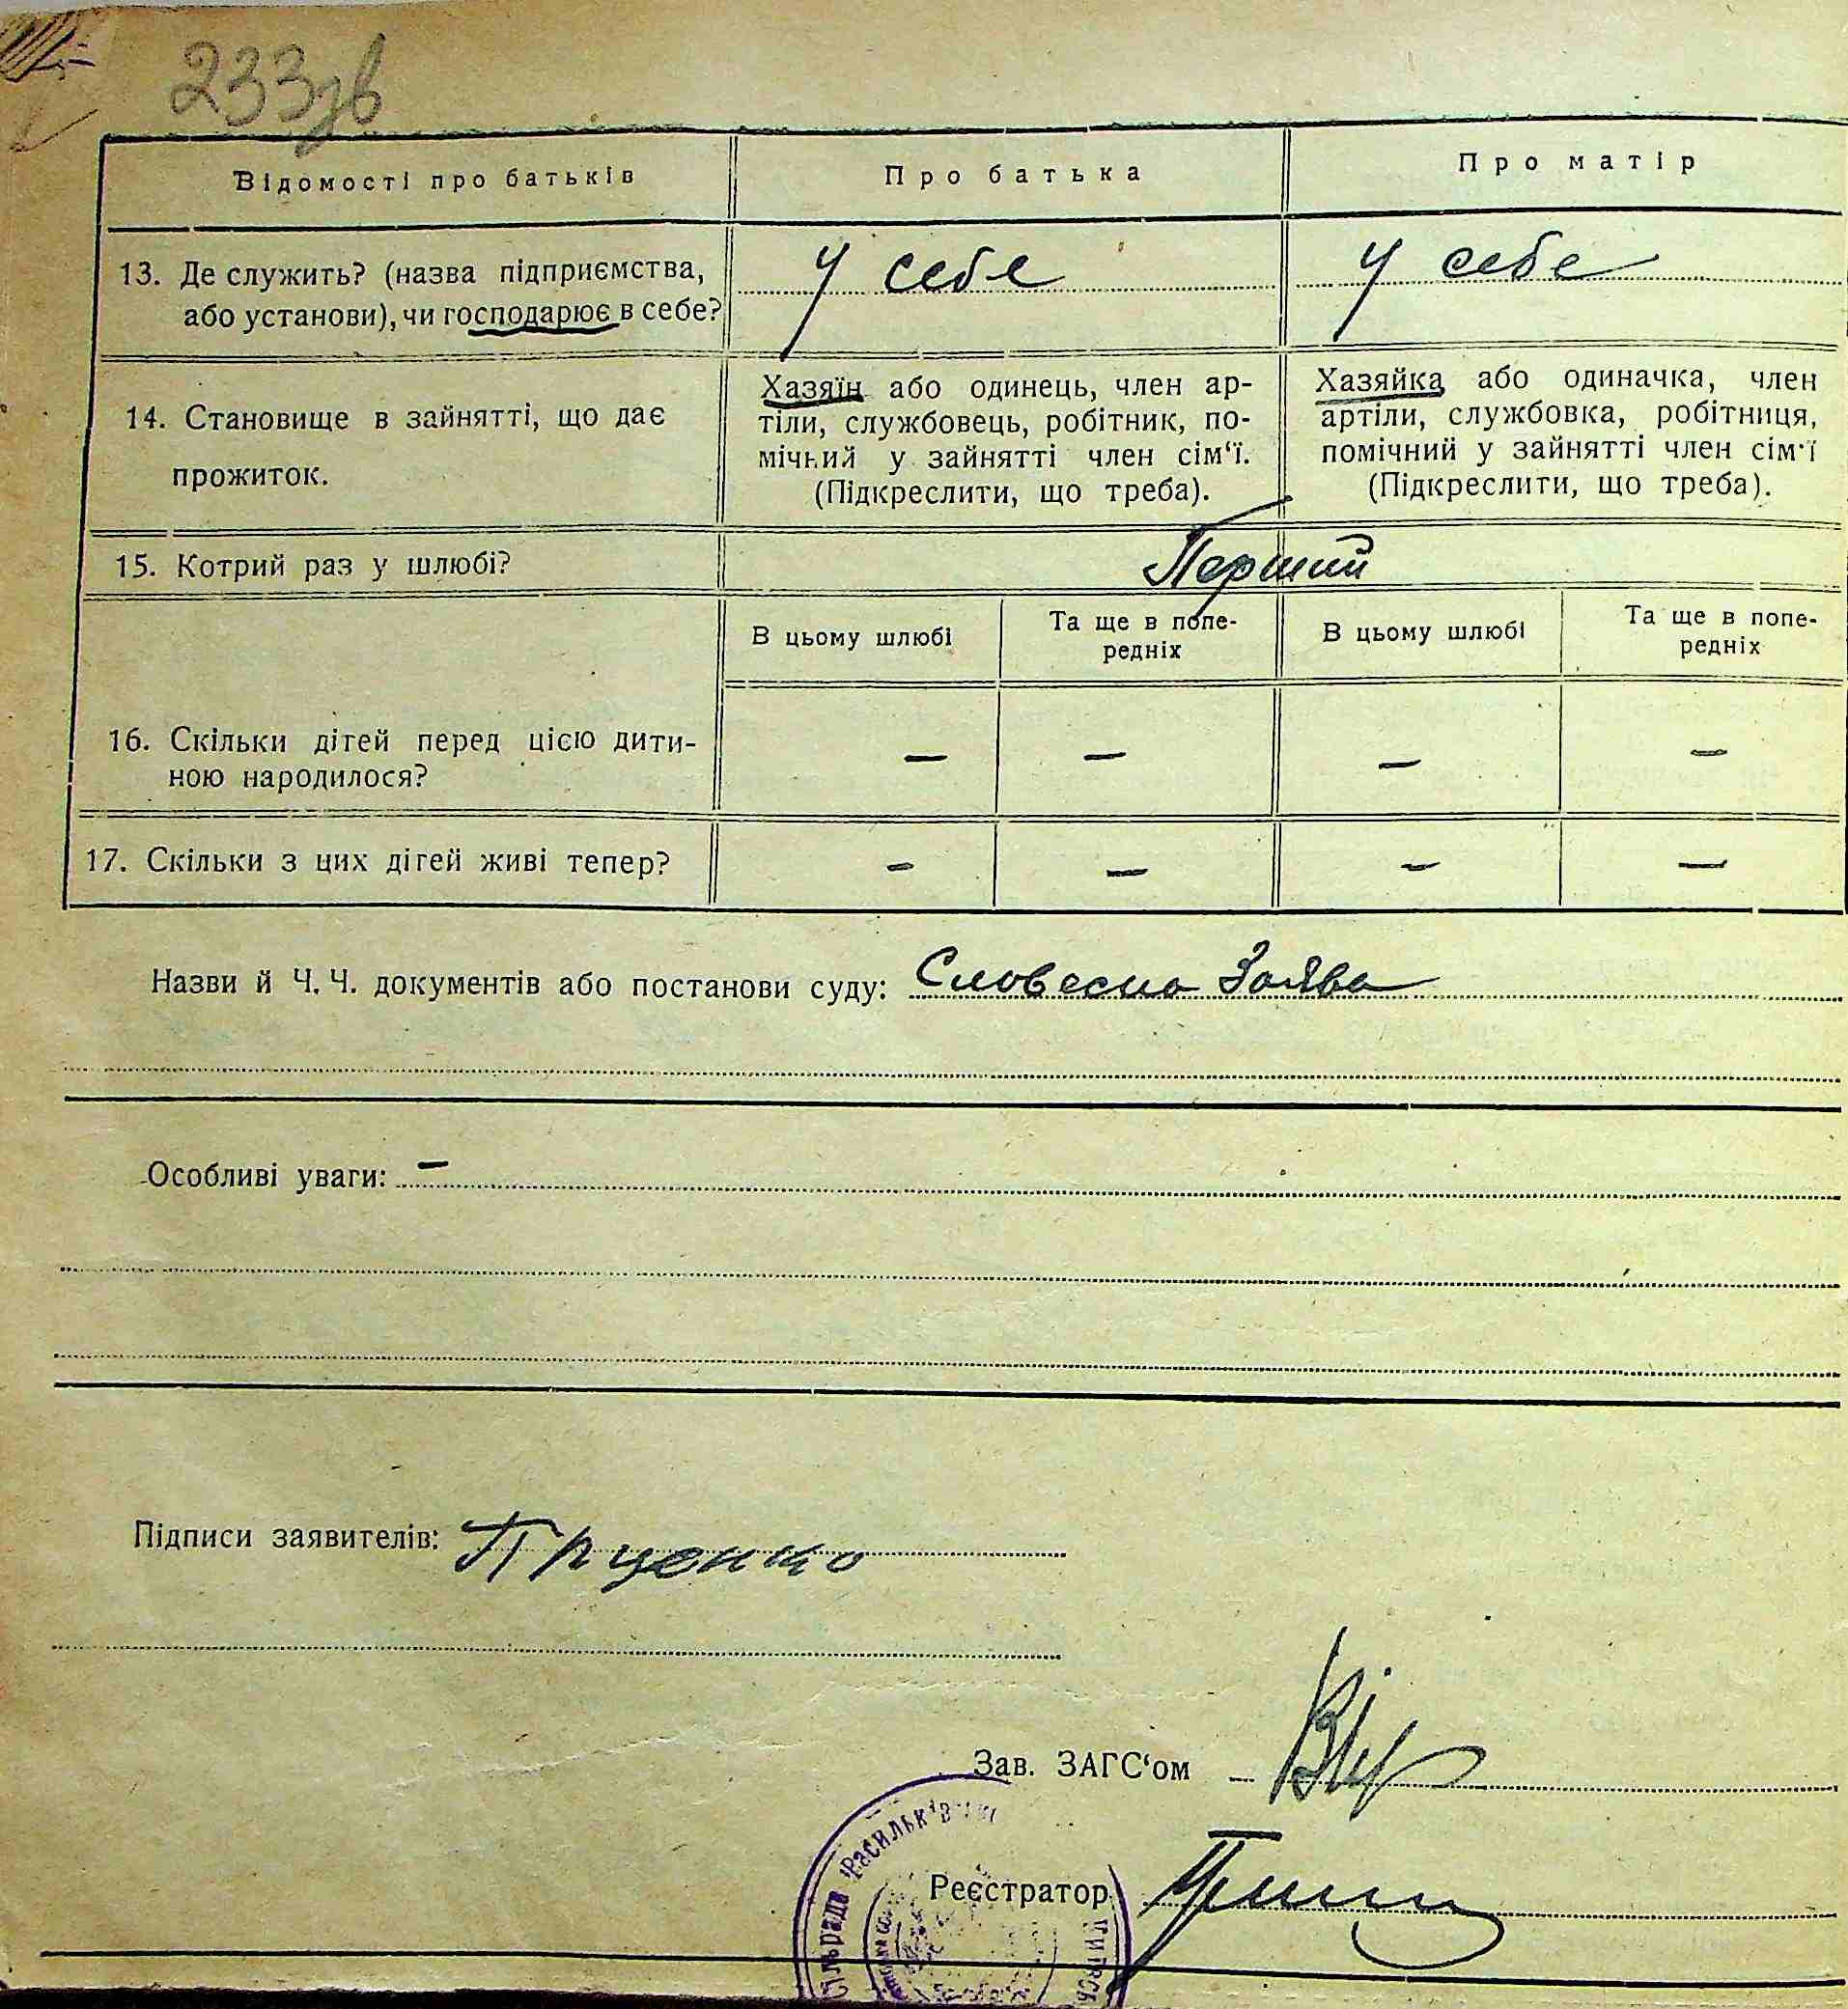 233зв
Відомості про батьків
Про батька
Про матір
13. Де служить? (назва підприємства,
або установи), чи господарює в себе?
У себе
У себе
14. Становище в зайнятті, що дає
прожиток.
Хазяїн або одинець, член ар-
тіли, службовець, робітник, по-
мічний у зайнятті член сім‘ї.
(Підкреслити, що треба).
Хазяйка або одиначка, член
артіли, службовка, робітниця,
помічний у зайнятті член сім‘ї
(Підкреслити, що треба).
15. Котрий раз у шлюбі?
Перший
В цьому шлюбі
Та ще в попе-
редніх
В цьому шлюбі
Та ще в попе-
редніх
16. Скільки дітей перед цією дити-
ною народилося?
— — — —
17. Скільки з цих дітей живі тепер?
— — — —
Назви й Ч. Ч. документів або постанови суду: Словесна Заява
Особливі уваги: —
Підписи заявителів: Проценко
Зав. ЗАГС‘ом
Реєстратор
сільрада Васильків